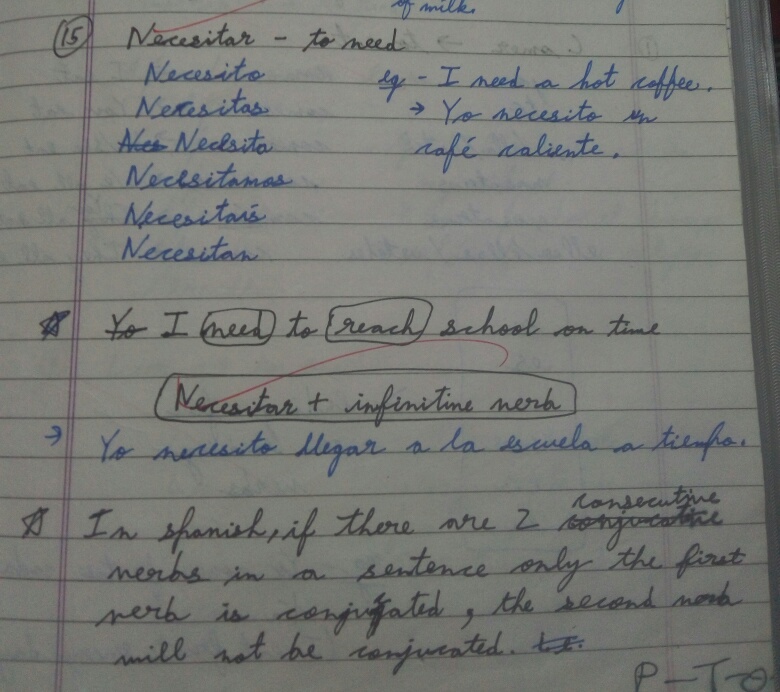 of milk.
15 Necesitar - to need
Necesito eg - I need a hot coffee.
Necesitas → Yo necesito un
Nes Necesita café caliente.
Necesitamos
Necesitaís
Necesitan
Yo I need to reach school on time
Necesitar + infinitive verb
→ Yo necesito llegar a la escuela a tiempo.
In spanish, if there are 2 consecutive
verbs in a sentence only the first
verb is conjugated, the second verb
will not be conjucated.
P-T-O